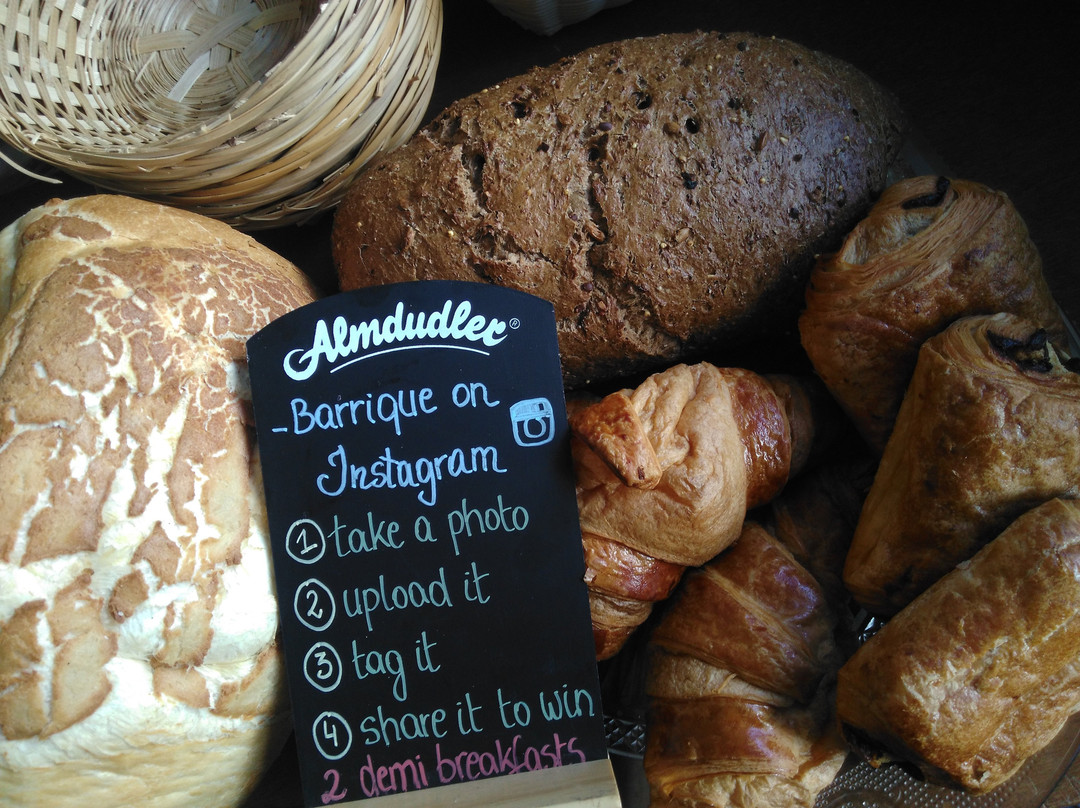 Almdudler®
-Barrique on
Instagram
1 take a photo
2 upload it
3 tag it
4 share it to win
2 demi breakfasts